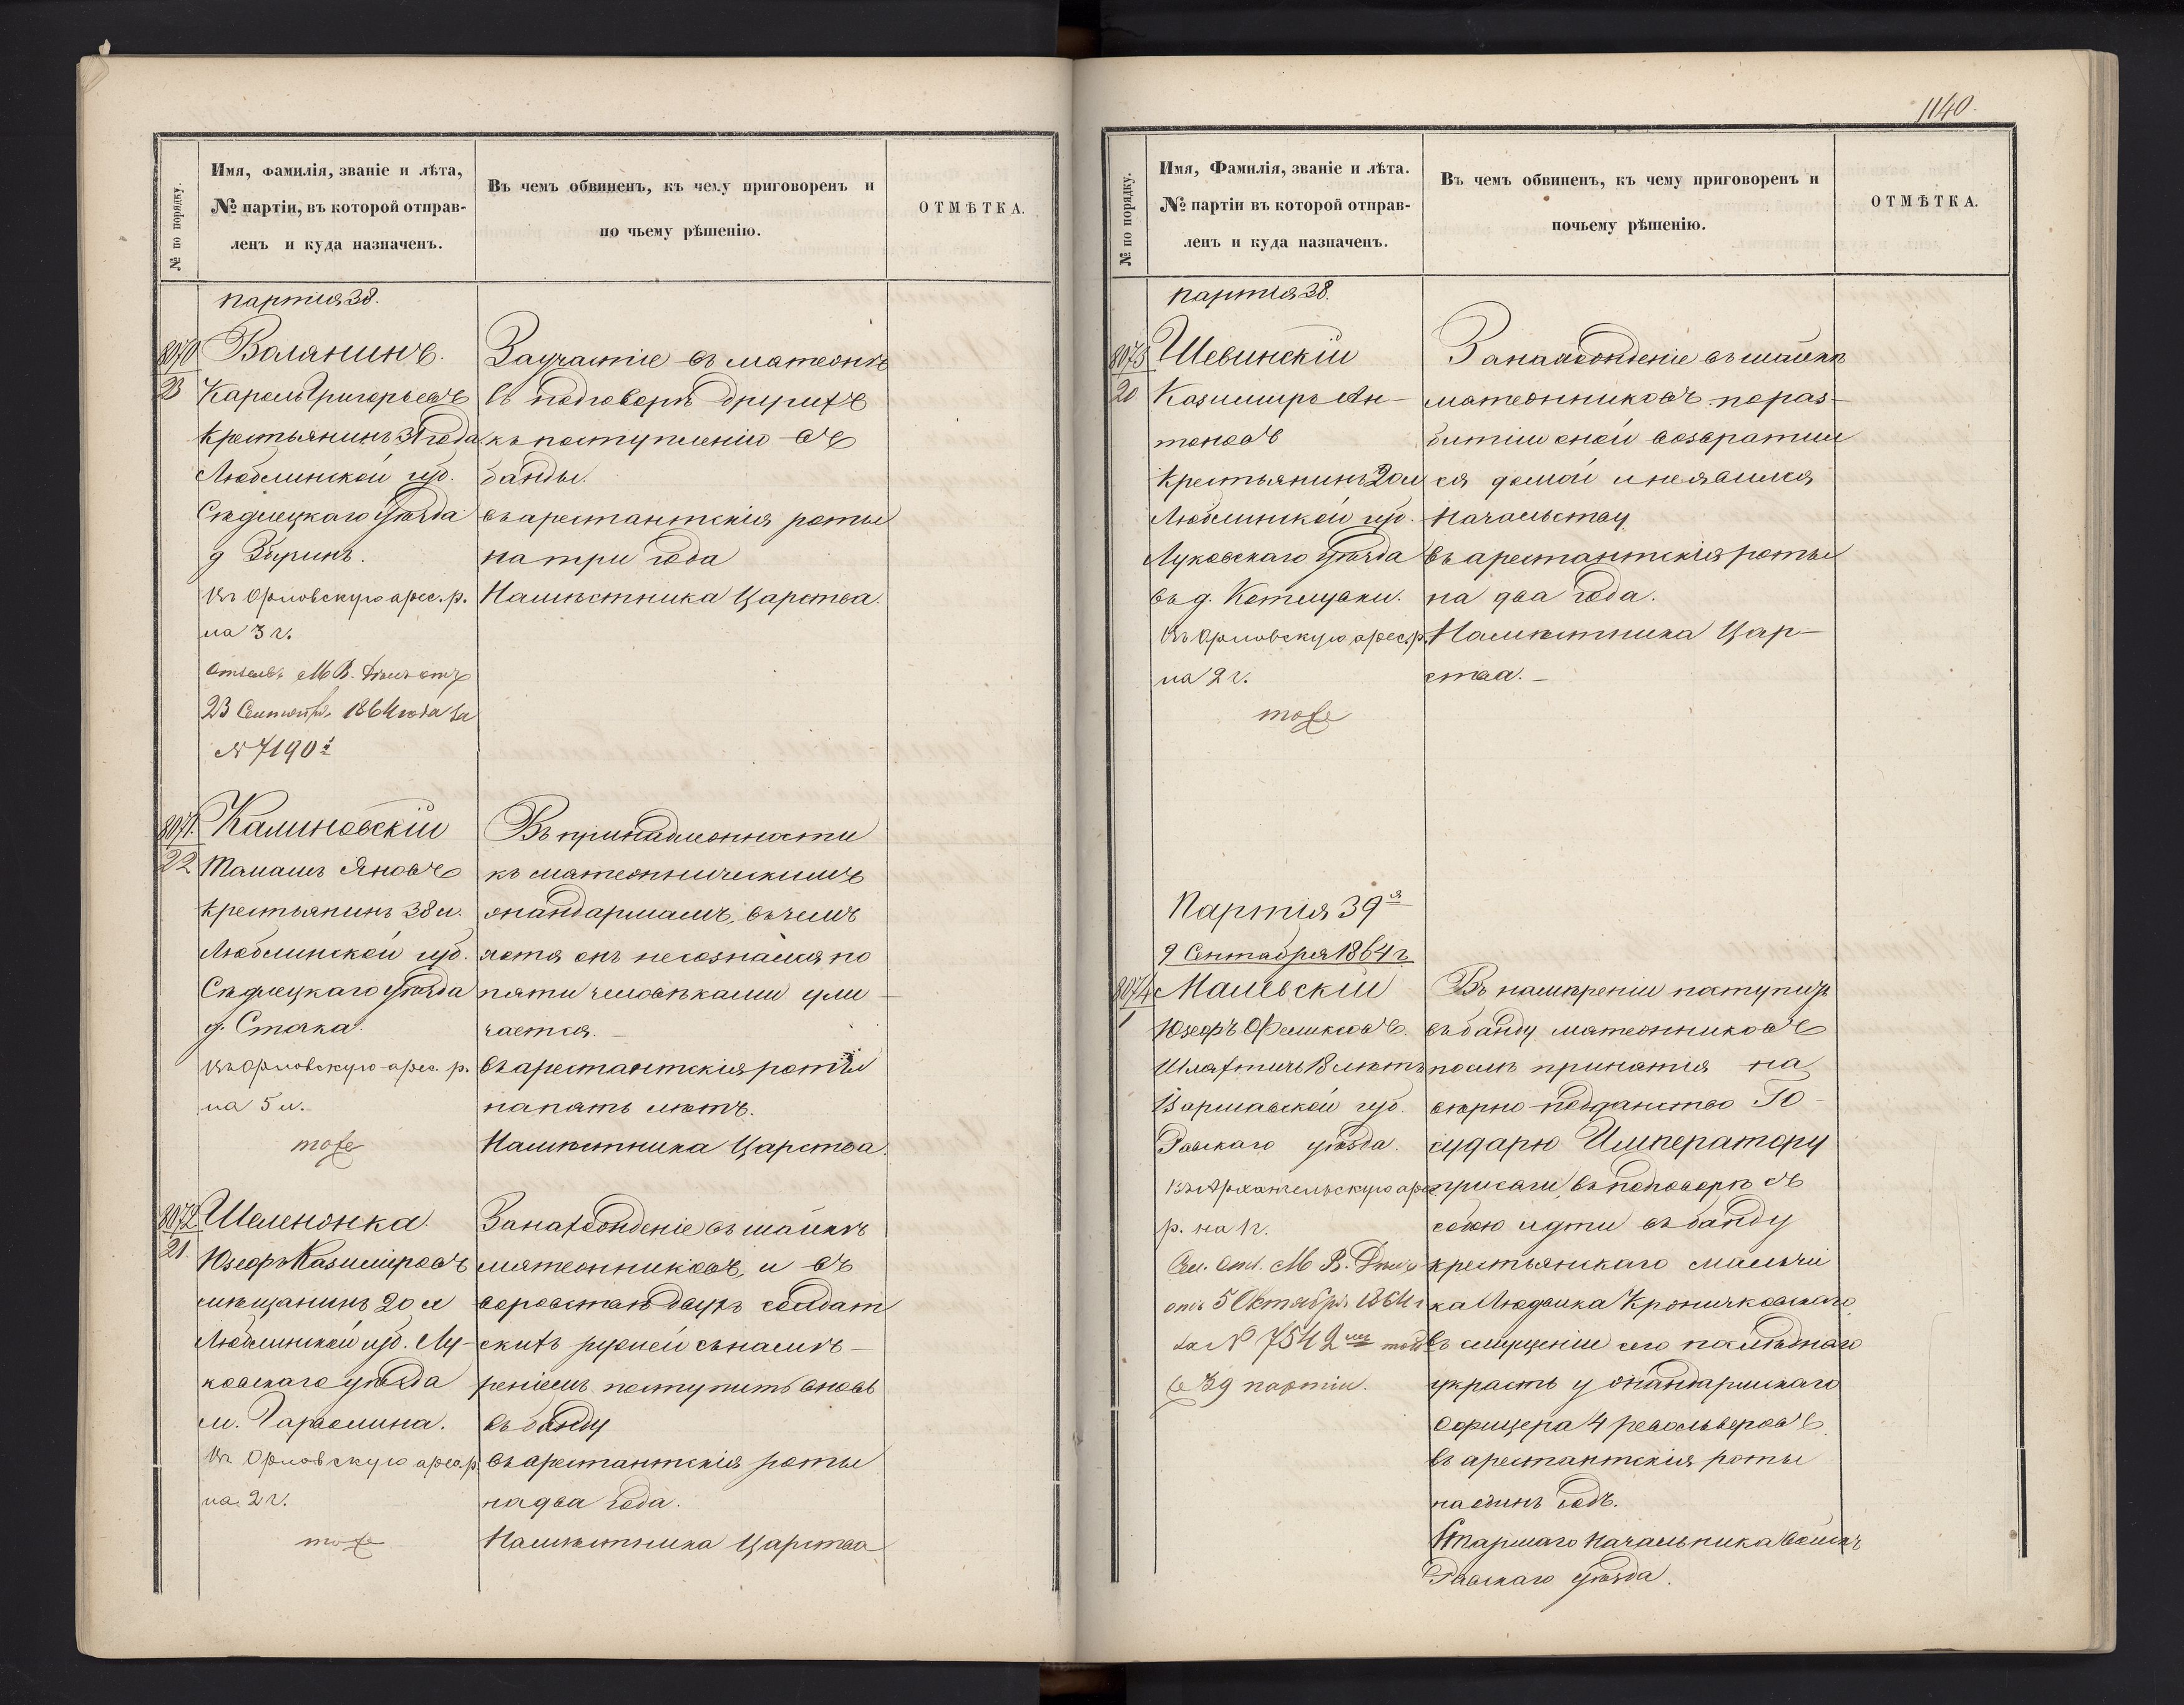 1140.
№ по порядку.
Имя, фамилія, званіе и лѣта,
№ партіи, въ которой отправ-
ленъ и куда назначенъ.
Въ чемъ обвиненъ, къ чему приговоренъ и
по чьему рѣшенію.
ОТМѢТКА.
партія 38.
8070
23
Валянинъ.
Кароль Григорьевъ
Крестьянинъ 31 года
Люблинской губ.
Сѣдлецкаго уѣзда
д
въ Орловскую арес. р.
на 3 г.
М В. Дѣлъ отъ
23 Сентяб. 1864 года за
№ 7190 і
За участіе въ мятежѣ
въ подговорѣ другихъ
къ поступленію въ
банды.
въ арестантскія роты
на три года
Намѣстника Царства.
8071.
22
Калиновскій
Томашъ Яновъ
Крестьянинъ 38 л.
Люблинской губ.
Сѣдлецкаго уѣзда
д. Стока.
въ Орловскую арес. р.
на 5 л.
тоже
Въ принадлежности
къ мятежническимъ
жандармамъ, въ чемъ
хотя онъ несознался но
пяти человѣками ули-
чается.
въ арестантскія роты
на пять лѣтъ.
Намѣстника Царства.
8072
21.
Шеленонка.
Юзефъ Казиміровъ
мѣщанинъ 20 л
Люблинской губ. Лу-
ковскаго уѣзда
м. Гарволина.
въ Орловскую арес. р.
на 2 г.
тоже
За нахожденіе въ шайкѣ
мятежниковъ, и въ
воровствѣ двухъ солдат
скихъ ружей съ намѣ-
реніемъ поступить вновь
въ банду
въ арестантскія роты
на два года.
Намѣстника Царства
№ по порядку.
Имя, Фамилія, званіе и лѣта.
№ партіи въ которой отправ-
ленъ и куда назначенъ.
Въ чемъ обвиненъ, къ чему приговоренъ и
почьему рѣшенію.
ОТМѢТКА.
партія 38.
8073
20
Шевинскій
Казиміръ Ан-
тоновъ
Крестьянинъ 20 л
Люблинской губ.
Луковскаго уѣзда
въ д.
въ Орловскую арес. р.
на 2 г.
тоже
За нахожденіе въ шайкѣ
мятежниковъ по раз-
битіи оной возвратил
ся домой и неявился
Начальству
въ арестантскія роты
на два года.
Намѣстника Цар-
ства.-
Партія 39я
9 Сентября 1864 г.
8074
1
Малевскій
Юзефъ Феликсовъ.
Шляхтичъ 18 лѣтъ
Варшавской губ.
Равскаго уѣзда.
въ Архангельскую арес.
р. на 1 г.
М. В. Дѣлъ
отъ 5 Октября 1864 г
за № 7542
39 партіи.
Въ намѣреніи поступить
въ банду мятежниковъ
послѣ принятія на
вѣрно-подданство Го-
сударю Императору
присяги, въ подговорѣ съ
собою идти въ банду
крестьянскаго мальчи
ка Людвика Кроничковскаго,
въ смущеніи сего послѣдняго
украсть у жандармскаго
Офицера 4 револьверовъ.
въ арестантскія роты
на одинъ годъ.
Старшаго Начальника Войскъ
Равскаго уѣзда.